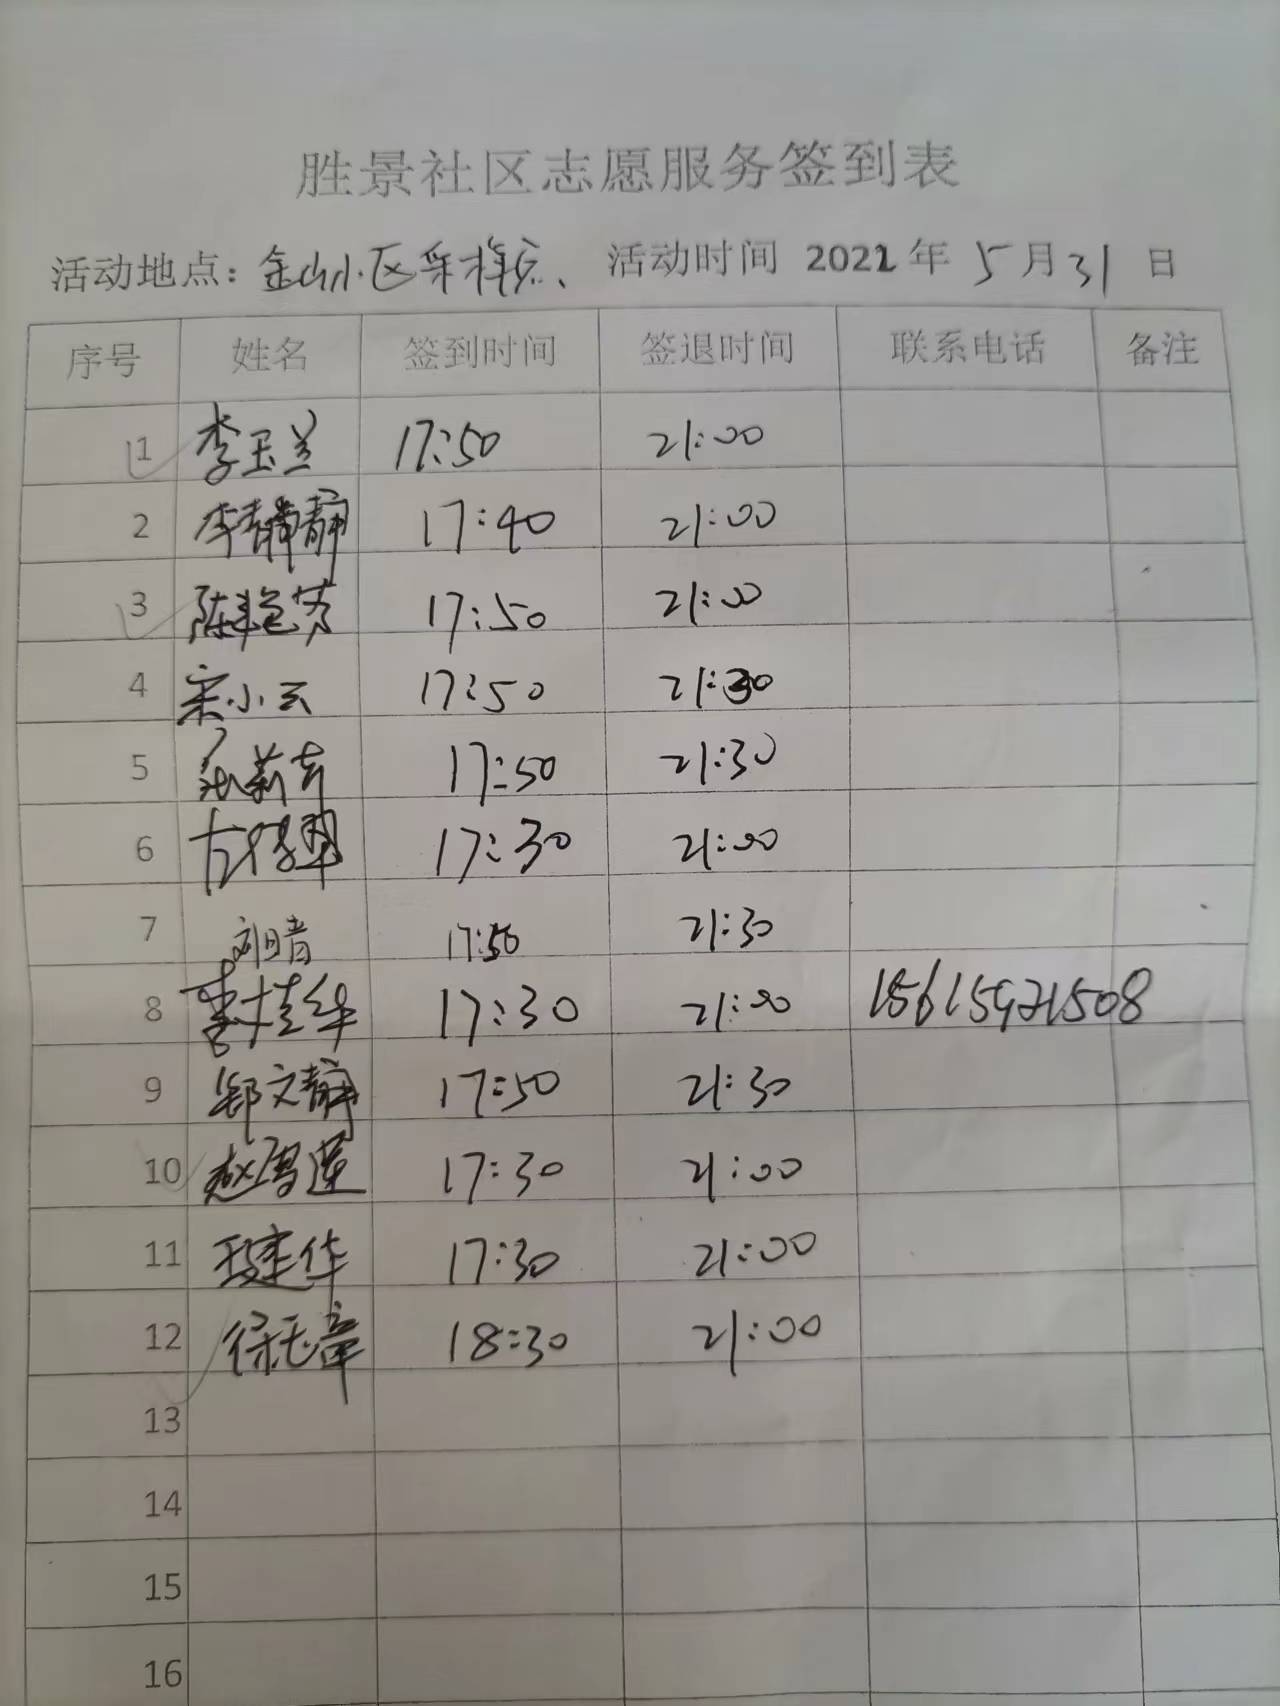 胜景社区志愿服务签到表
活动地点：金山小区采样点、 活动时间 2022 年 5 月 31 日
序号 姓名 签到时间 签退时间 联系电话 备注
1 李玉兰 17:50 21:00
2 李静静 17:40 21:00
3 陈艳芳 17:50 21:00
4 宋小云 17:50 21:30
5 17:50 21:30
6 17:30 21:00
7 刘明 17:50 21:30
8 李桂华 17:30 21:00 15615921508
9 郑文静 17:50 21:30
10 赵雪莲 17:30 21:00
11 段建华 17:30 21:00
12 徐玉章 18:30 21:00
13
14
15
16